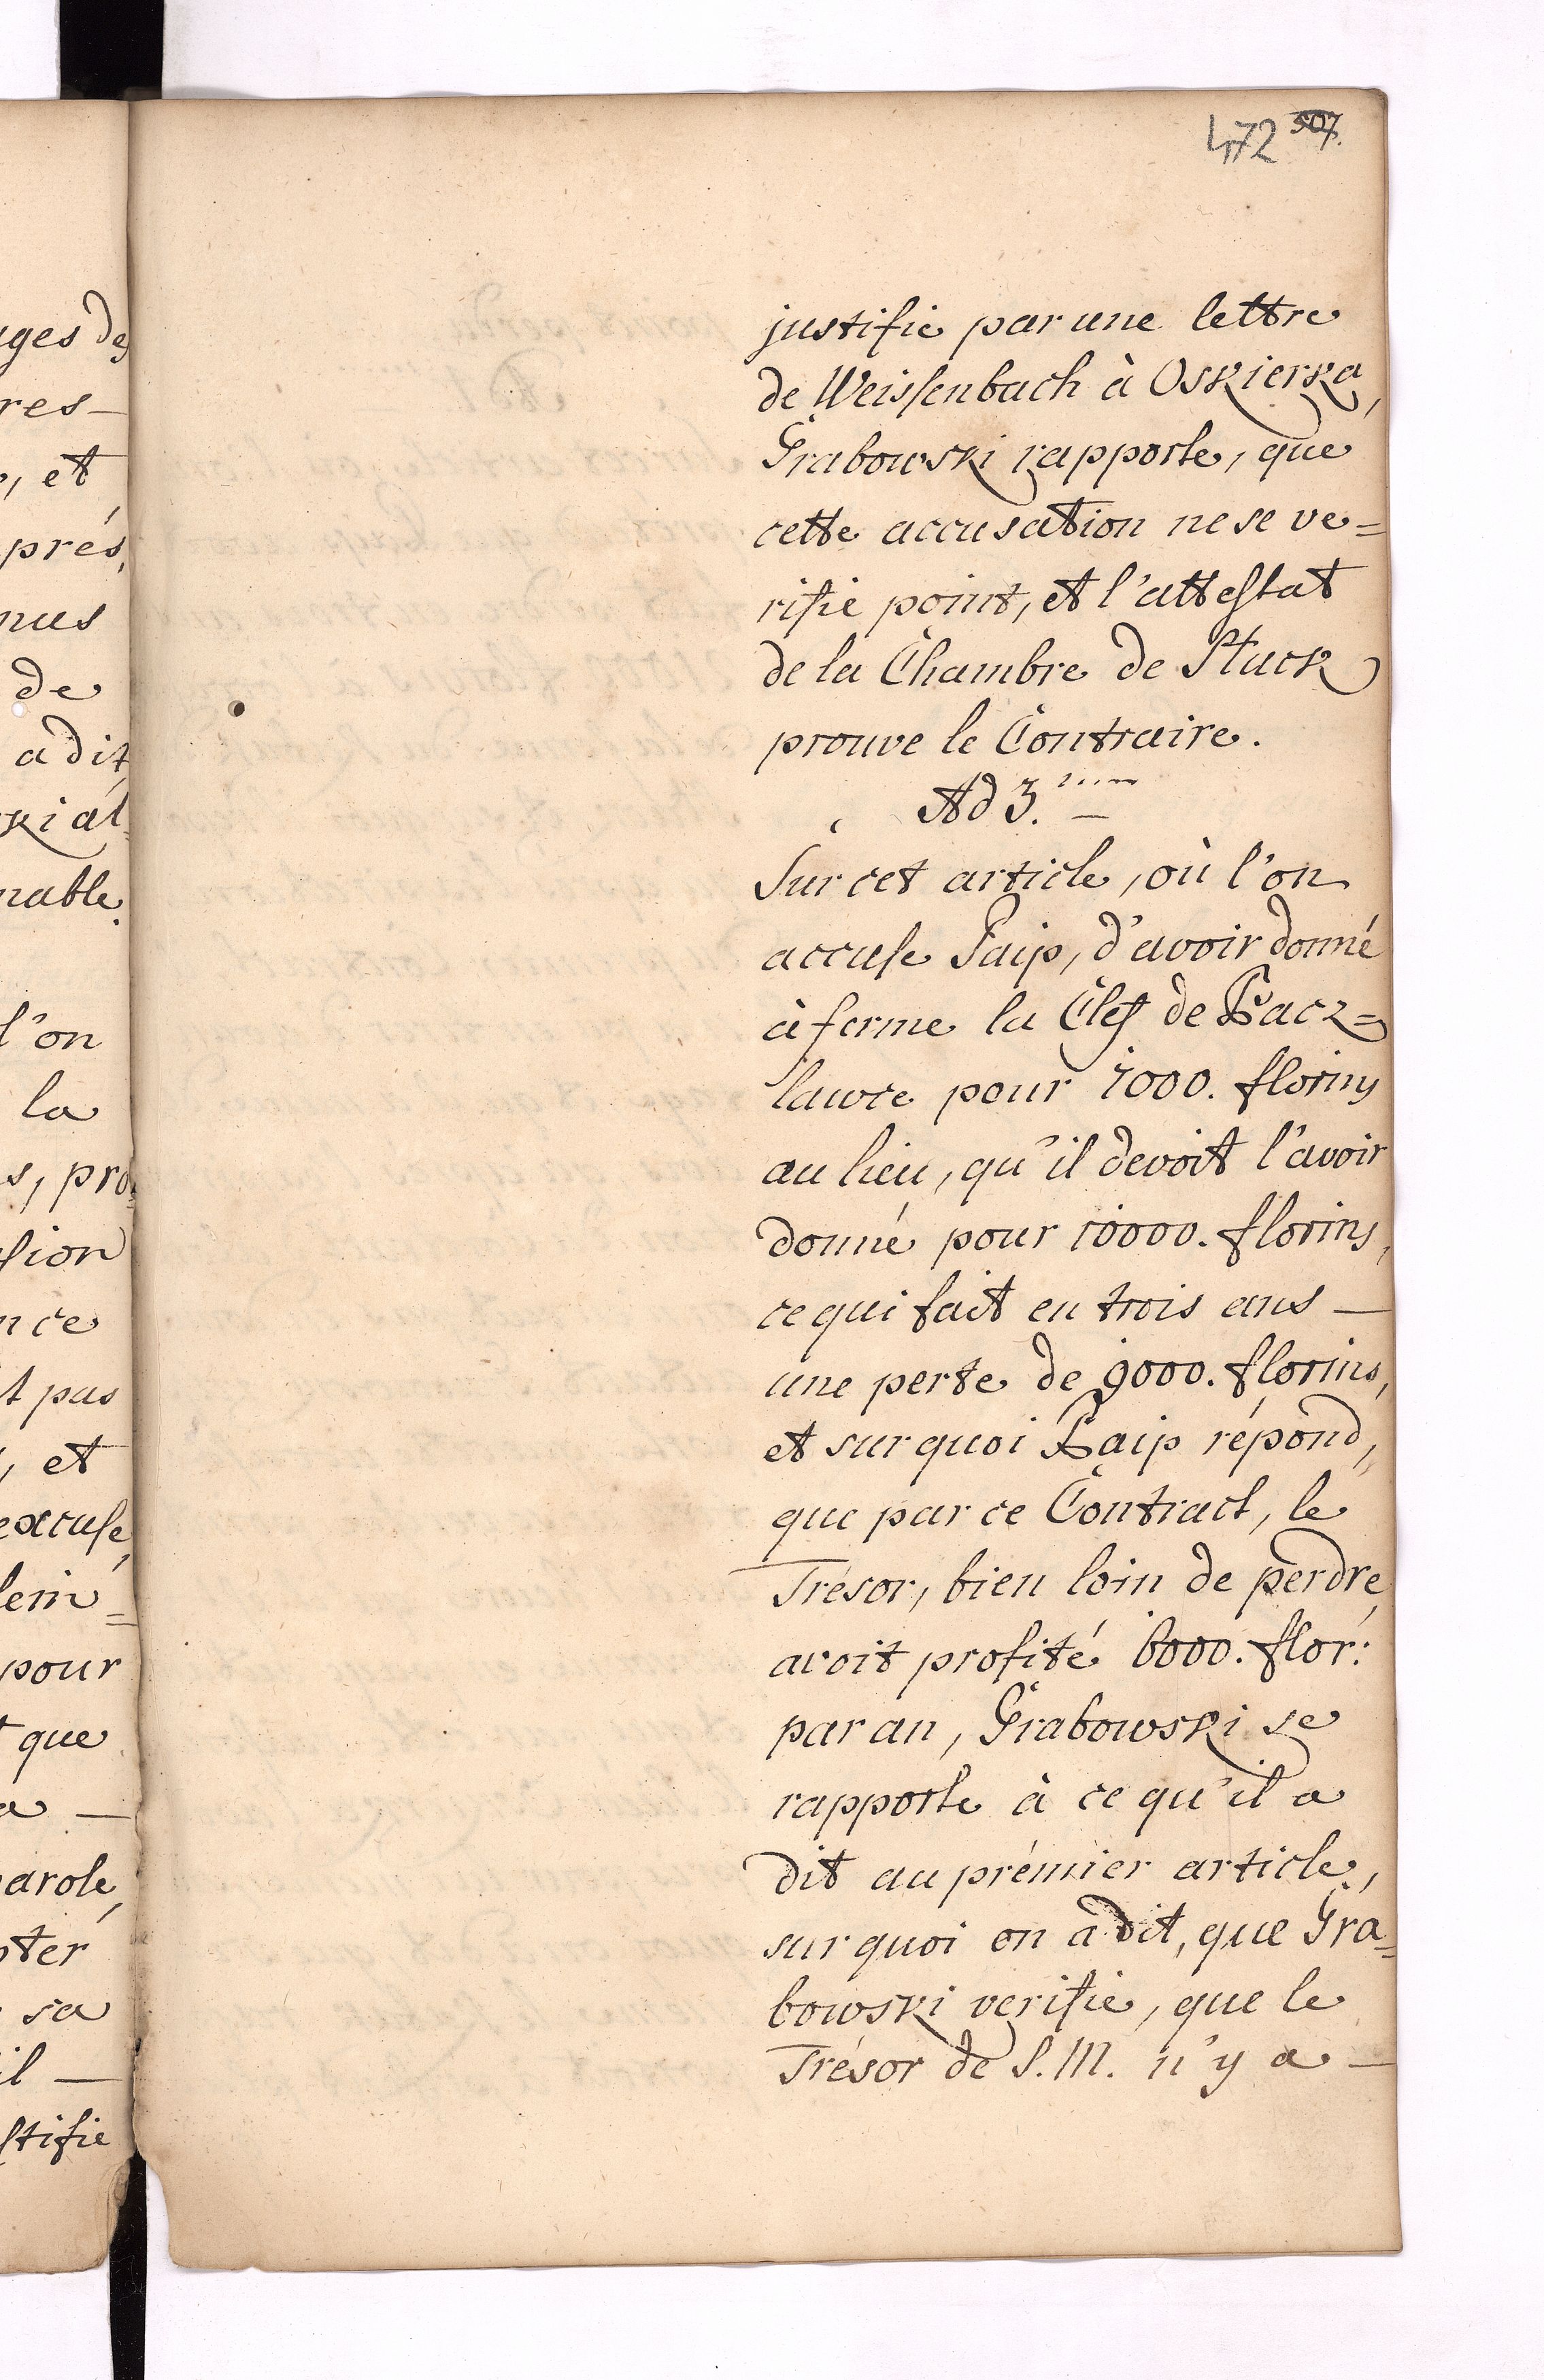 472 507.
ages des
res —
, et
prés,
nus
de
a dit,
ski al=
nable.
l'on
la
s, pro=
sion
nce
t pas
, et
excuse,
lein=
pour
t que
a —
parole,
pter
sa
il —
stifie
justifie par une lettre
de Weissenbach à Oskierka,
Grabowski rapporte, que
cette accusation ne se ve=
rifie point, et l'attestat
de la Chambre de Stuck
prouve le Contraire.
Ad 3.
Sur cet article, où l'on
accuse Paip, d'avoir donné
à ferme la Clef de Racz=
lawce pour 7000. florins
au lieu, qu'il devoit l'avoir
donné pour 10000. florins,
ce qui fait en trois ans —
une perte de 9000. florins,
et sur quoi Paip répond,
que par ce Contract, le
Trésor, bien loin de perdre,
avoit profité 6000. flor:
par an, Grabowski se
rapporte à ce qu'il a
dit au prémier article,
sur quoi on a dit, que Gra=
bowski verifie, que le
Trésor de S. M. n'y a —